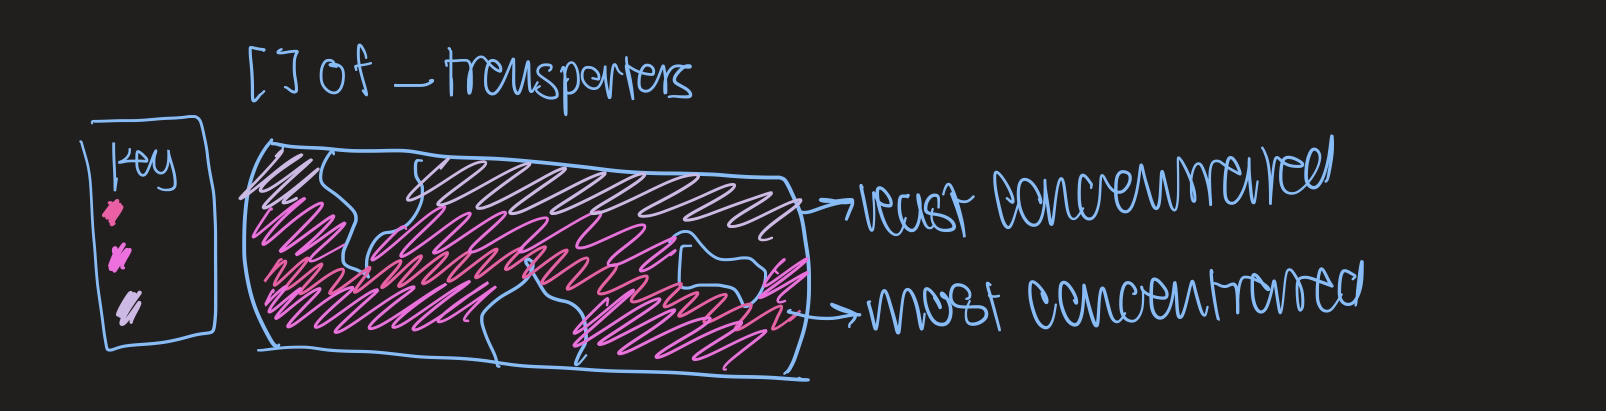 [ ] of _transporters
key
least concentrated
most concentrated